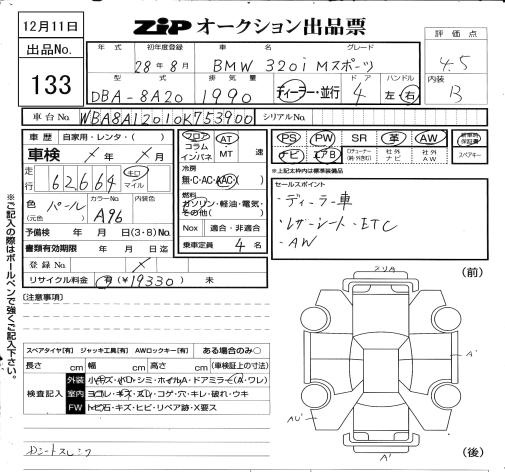 12月11日
ZiPオークション出品票
出品No.
133
年式 初年度登録 車名 グレード
28年8月 BMW 320i Mスポーツ
型式 排気量 ドア ハンドル
DBA-8A20 1990 ディーラー・並行 4 左・右
評価点
4.5
内装
B
車台No. WBA8A12010K753900 シリアルNo.
車歴 自家用・レンタ・( )
車検 × 年 × 月
走行 62664 キロ マイル
色 パール (元色) カラーNo. A96 内装色
予備検 年 月 日(3・8)No.
書類有効期限 年 月 日迄
登録No. ×
リサイクル料金 有(¥19330) 未
フロア コラム インパネ AT・MT 速
冷房
無・C・AC・AAC( )
燃料
ガソリン・軽油・電気・その他( )
Nox 適合・非適合
乗車定員 4 名
PS PW SR 革 AW 新車時保証書
ナビ エアB 社外ナビ 社外AW スペアキー
※上記太枠内は標準装備品
セールスポイント
・ディーラー車
・レザーシート・ETC
・AW
(注意事項)
スペアタイヤ[有] ジャッキ工具[有] AWロックキー[有] ある場合のみ〇
長さ cm 幅 cm 高さ cm (車検証上の寸法)
検査記入
外装 小キズ・小凹・シミ・ホイルA・ドアミラー(A・ワレ)
室内 ヨゴレ・キズ・スレ・コゲ・穴・キレ・破れ・ウキ
FW トビ石・キズ・ヒビ・リペア跡・X要ス
Dシートスレシワ
※ご記入の際はボールペンで強くご記入下さい。
(前)
A'
A'
(後)